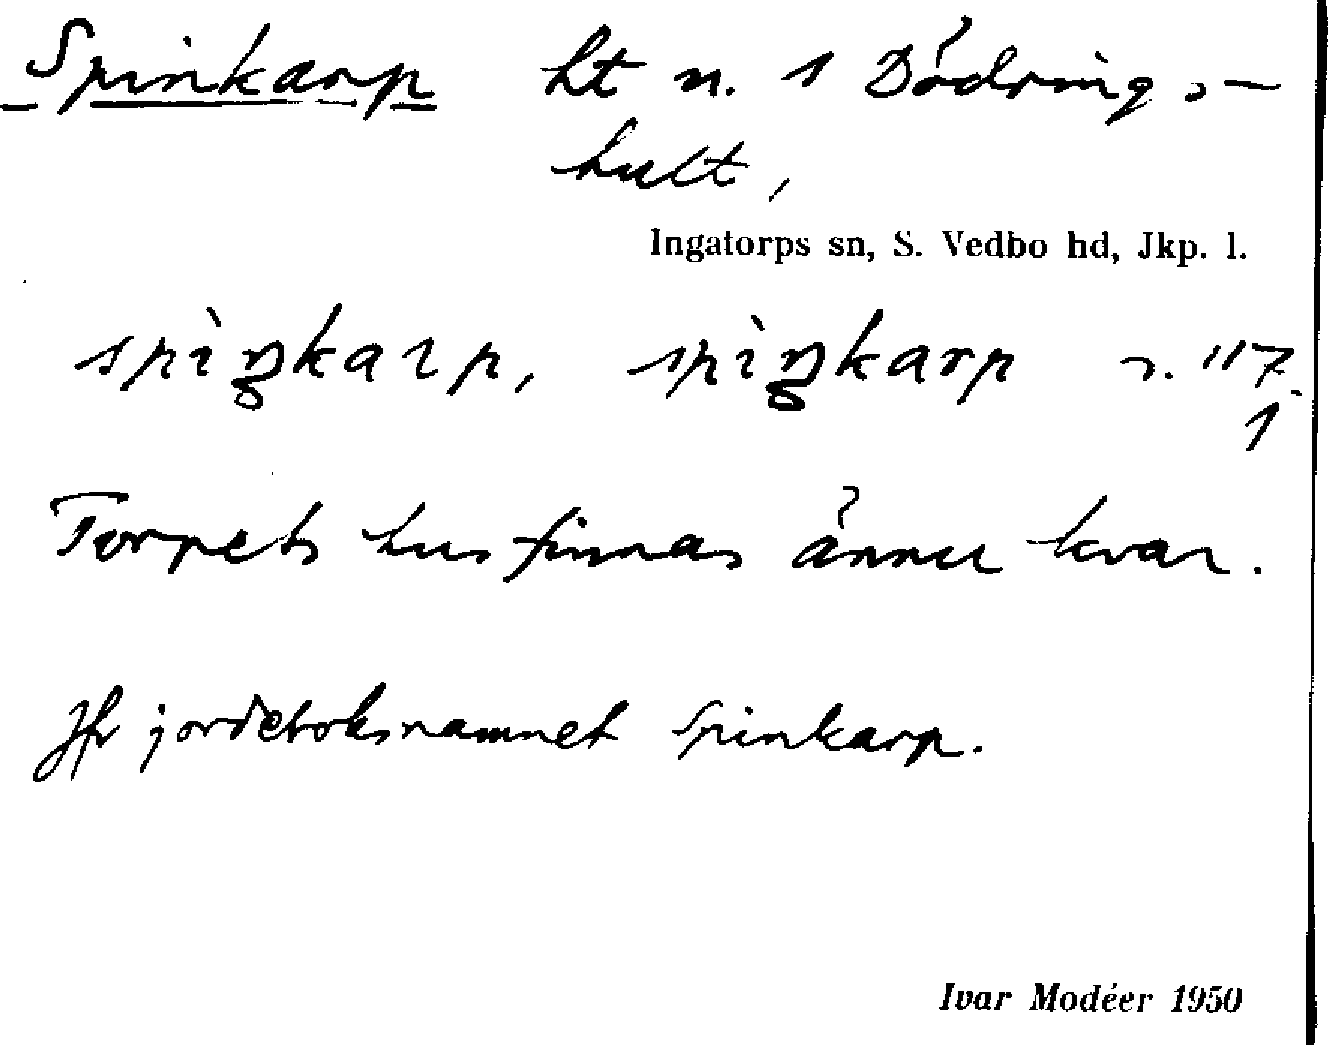 Spinkarp ht n. 1 Dödrings-
hult,
Ingatorps sn, S. Vedbo hd, Jkp. l.
spìŋkarp, spìŋkarp
Torpets hus finnas ännu kvar.
Jfr jordeboksnamnet Spinkarp.
Ivar Modéer 1950